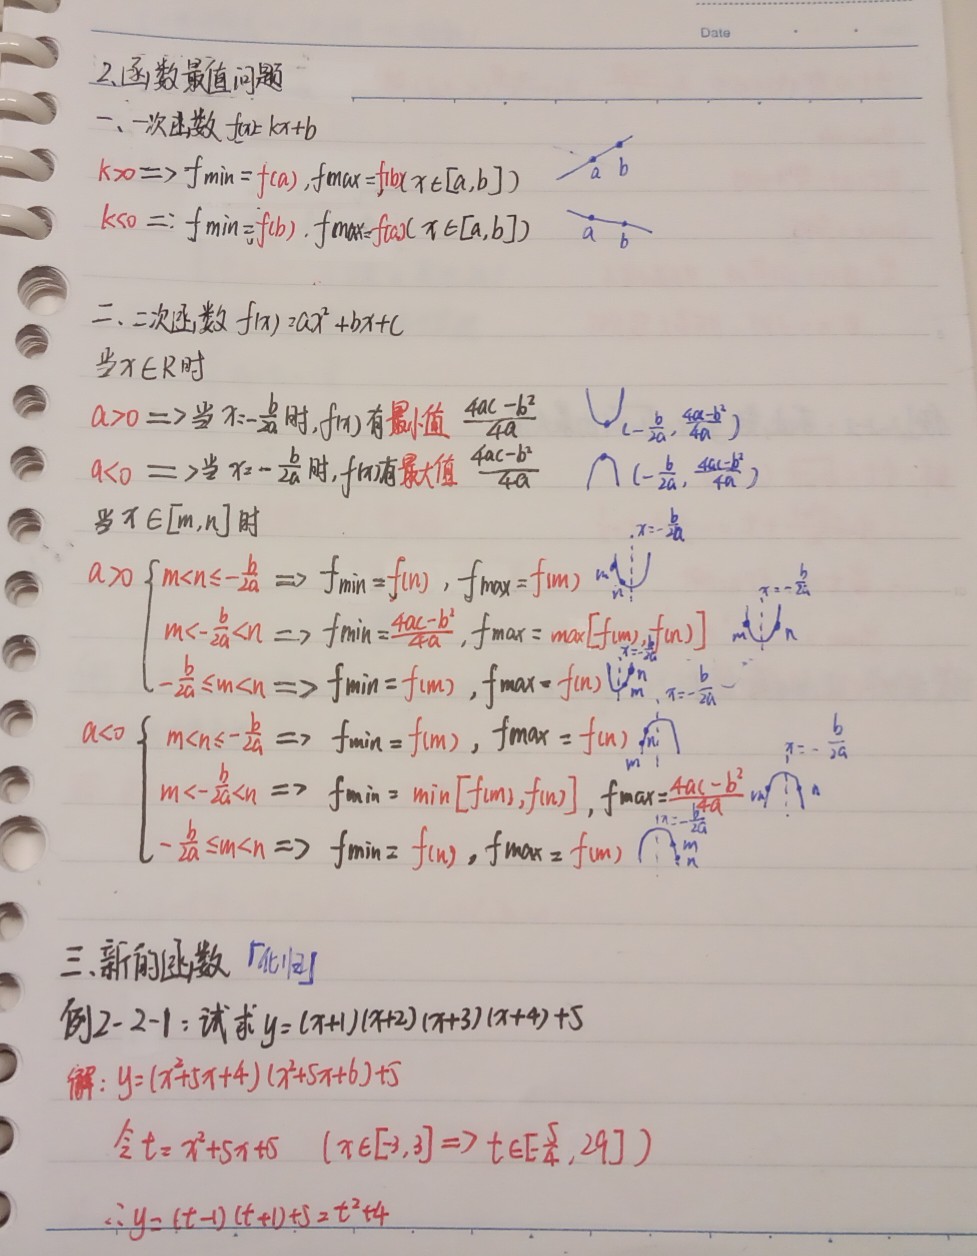 Date
2.函数最值问题
一、一次函数 f(x)=kx+b
k>0=> fmin=f(a),fmax=f(b)(x∈[a,b]) a b
k<0=: fmin=f(b).fmax=f(a)(x∈[a,b]) a b
二、二次函数 f(x)=ax²+bx+c
当x∈R时
a>0=>当x=-b/2a时,f(x)有最小值 4ac-b²/4a (-b/2a, 4a-b²/4a)
a<0=>当x=-b/2a时,f(x)有最大值 4ac-b²/4a (-b/2a, 4ac-b²/4a)
当x∈[m,n]时 x=-b/2a
a>0 { m<n≤-b/2a => fmin=f(n), fmax=f(m) m n x=-b/2a
m<-b/2a<n => fmin=4ac-b²/4a, fmax=max[f(m),f(n)] m n x=-b/2a
-b/2a≤m<n => fmin=f(m),fmax=f(n) n m x=-b/2a
a<0 { m<n≤-b/2a => fmin=f(m),fmax=f(n) m n x=-b/2a
m<-b/2a<n => fmin=min[f(m),f(n)],fmax=4ac-b²/4a m n x=-b/2a
-b/2a≤m<n => fmin=f(n),fmax=f(m) m n
三、新的函数「化归」
例2-2-1:试求y=(x+1)(x+2)(x+3)(x+4)+5
解:y=(x²+5x+4)(x²+5x+6)+5
令t=x²+5x+5 (x∈[-3,3]=>t∈[-5/4,29])
∴y=(t-1)(t+1)+5=t²+4